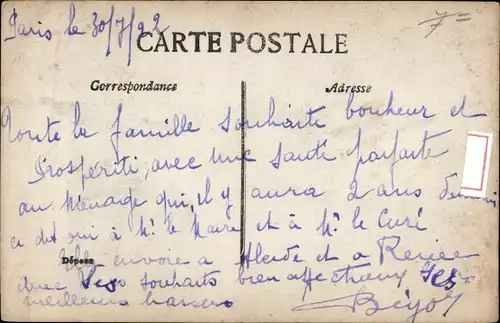 Paris le 30/7/22
7=
CARTE POSTALE
Correspondance
Adresse
Toute la famille souhaite bonheur et
Prospérité, avec une santé parfaite
au Ménage qui, il y aura 2 ans demain
a dit oui à Mr le Maire et à Mr le Curé
Dépose
envoie à et à Renée
avec ses souhaits bien affectueux ses
meilleurs baisers